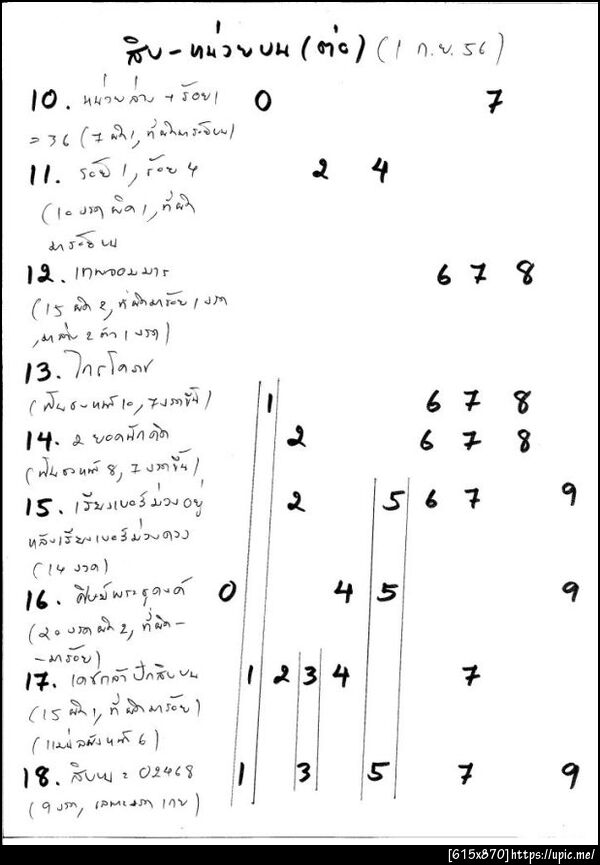 สิบ-หน่วยบน (ต่อ) (1 ก.ย. 56)
10. หน่วยล่าง + ร้อย 1 0 7
= 36 (7 ผิด 1, ที่ผิดมาร้อยบน)
11. ร้อย 1, ร้อย 4 2 4
(10 งวด ผิด 1, ที่ผิด
มาร้อยบน
12. เทพจอมมาร 6 7 8
(15 ผิด 2, ที่ผิดมาร้อย 1 งวด
, มาล่าง 2 ตัว 1 งวด)
13. ไกรโคราช 1 6 7 8
(ฟันธงหน้า 10, 7 งวดขึ้น)
14. 2 ยอดนักคิด 2 6 7 8
(ฟันธงหน้า 8, 7 งวดขึ้น)
15. เรียงเบอร์ม่วงอยู่ 2 5 6 7 9
หลังเรียงเบอร์ม่วงดวง
(14 งวด)
16. ศิษย์พระธุดงค์ 0 4 5 9
(20 งวด ผิด 2, ที่ผิด-
-มาร้อย)
17. เดชกล้า ปักสิบบน 1 2 3 4 7
(15 ผิด 1, ที่ผิดมาร้อย)
(แม่นหลัง 6)
18. สิบบน = 02468 1 3 5 7 9
(9 งวด,
[615x870]https://upic.me/